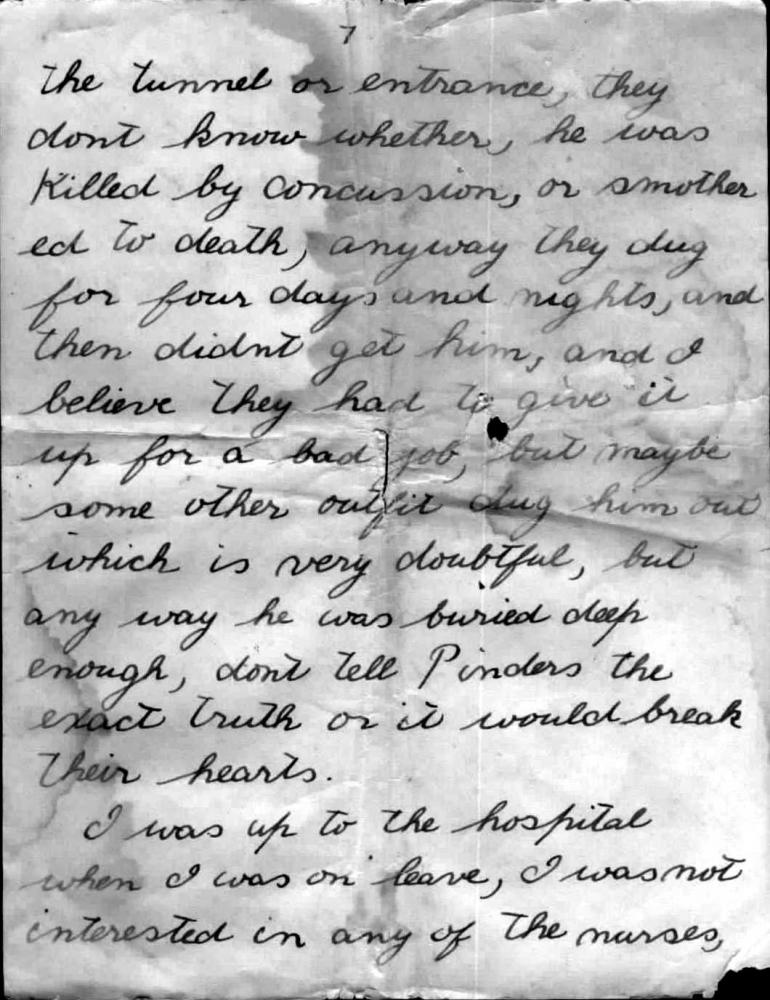 7
the tunnel or entrance, they
dont know whether, he was
Killed by concussion, or smother
ed to death, anyway they dug
for four days and nights, and
then didnt get him, and I
believe they had to give it
up for a bad job, but maybe
some other outfit dug him out
which is very doubtful, but
any way he was buried deep
enough, dont tell Pinders the
exact truth or it would break
their hearts.
I was up to the hospital
when I was on leave, I was not
interested in any of the nurses,